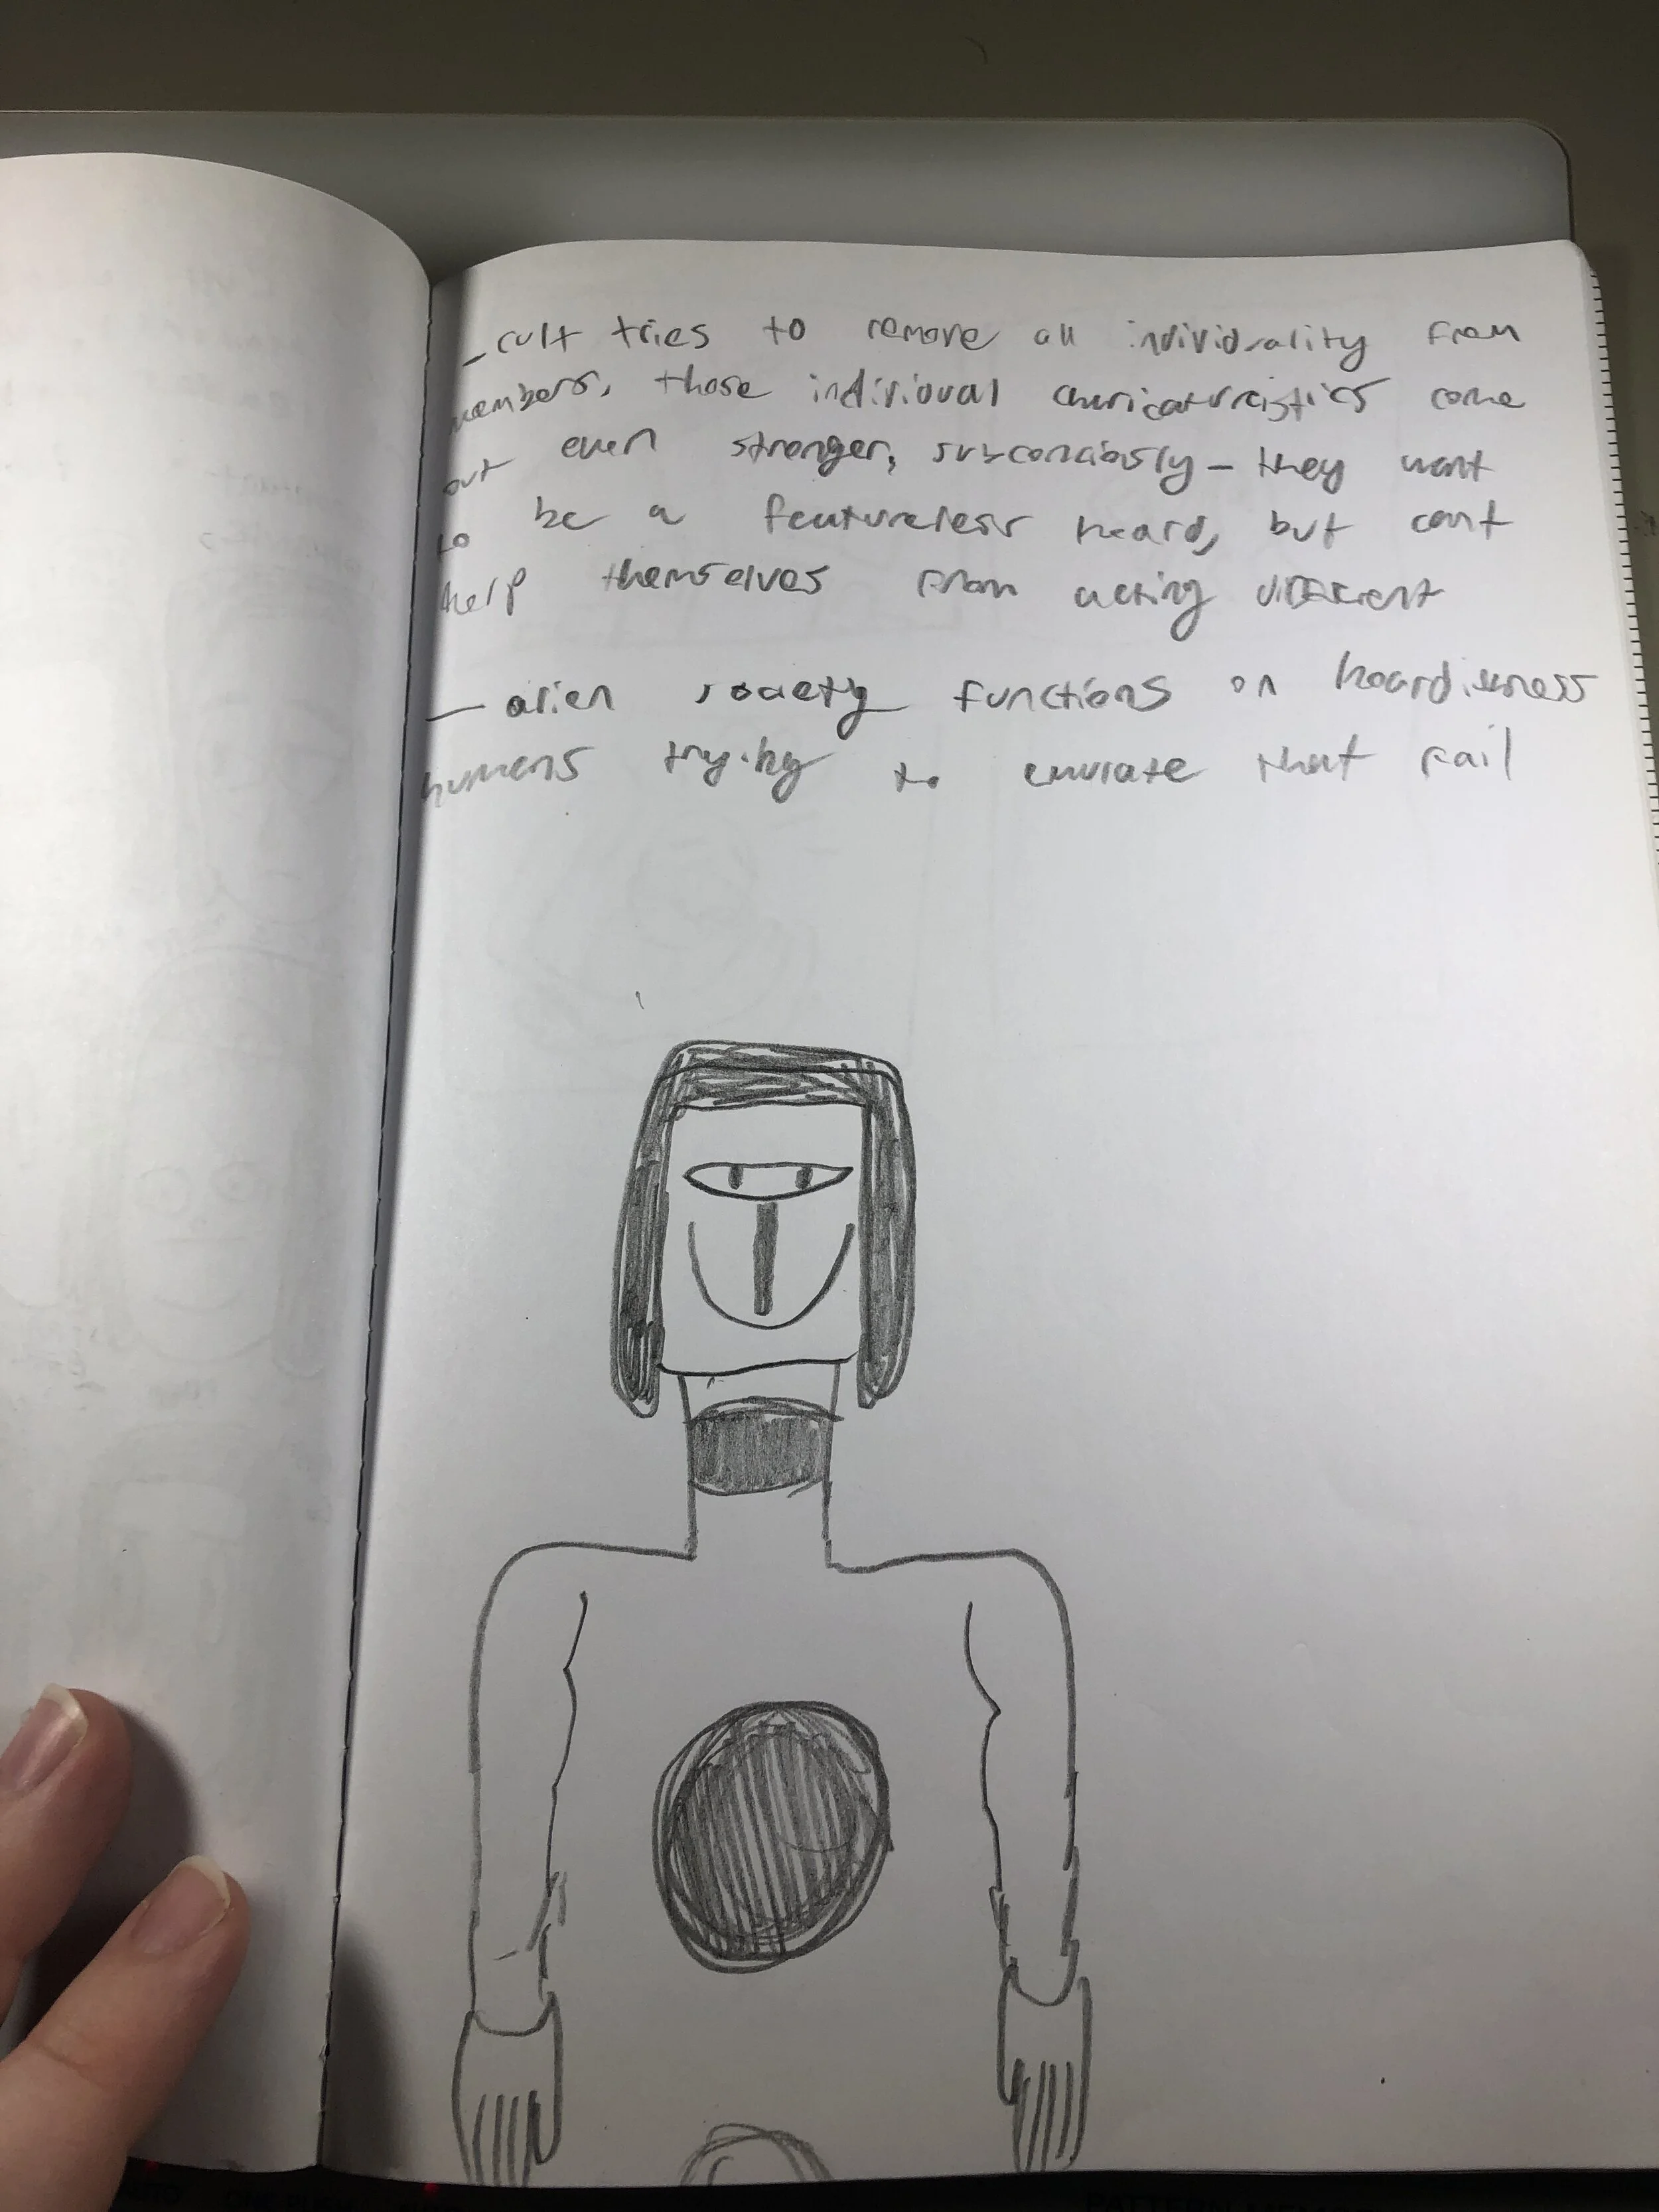 - cult tries to remove all individuality from
members, those individual charicaturistics come
out even stronger, subconciously - they want
to be a featureless heard, but cant
help themselves from acting different
- alien society functions on
humans trying to emulate that fail